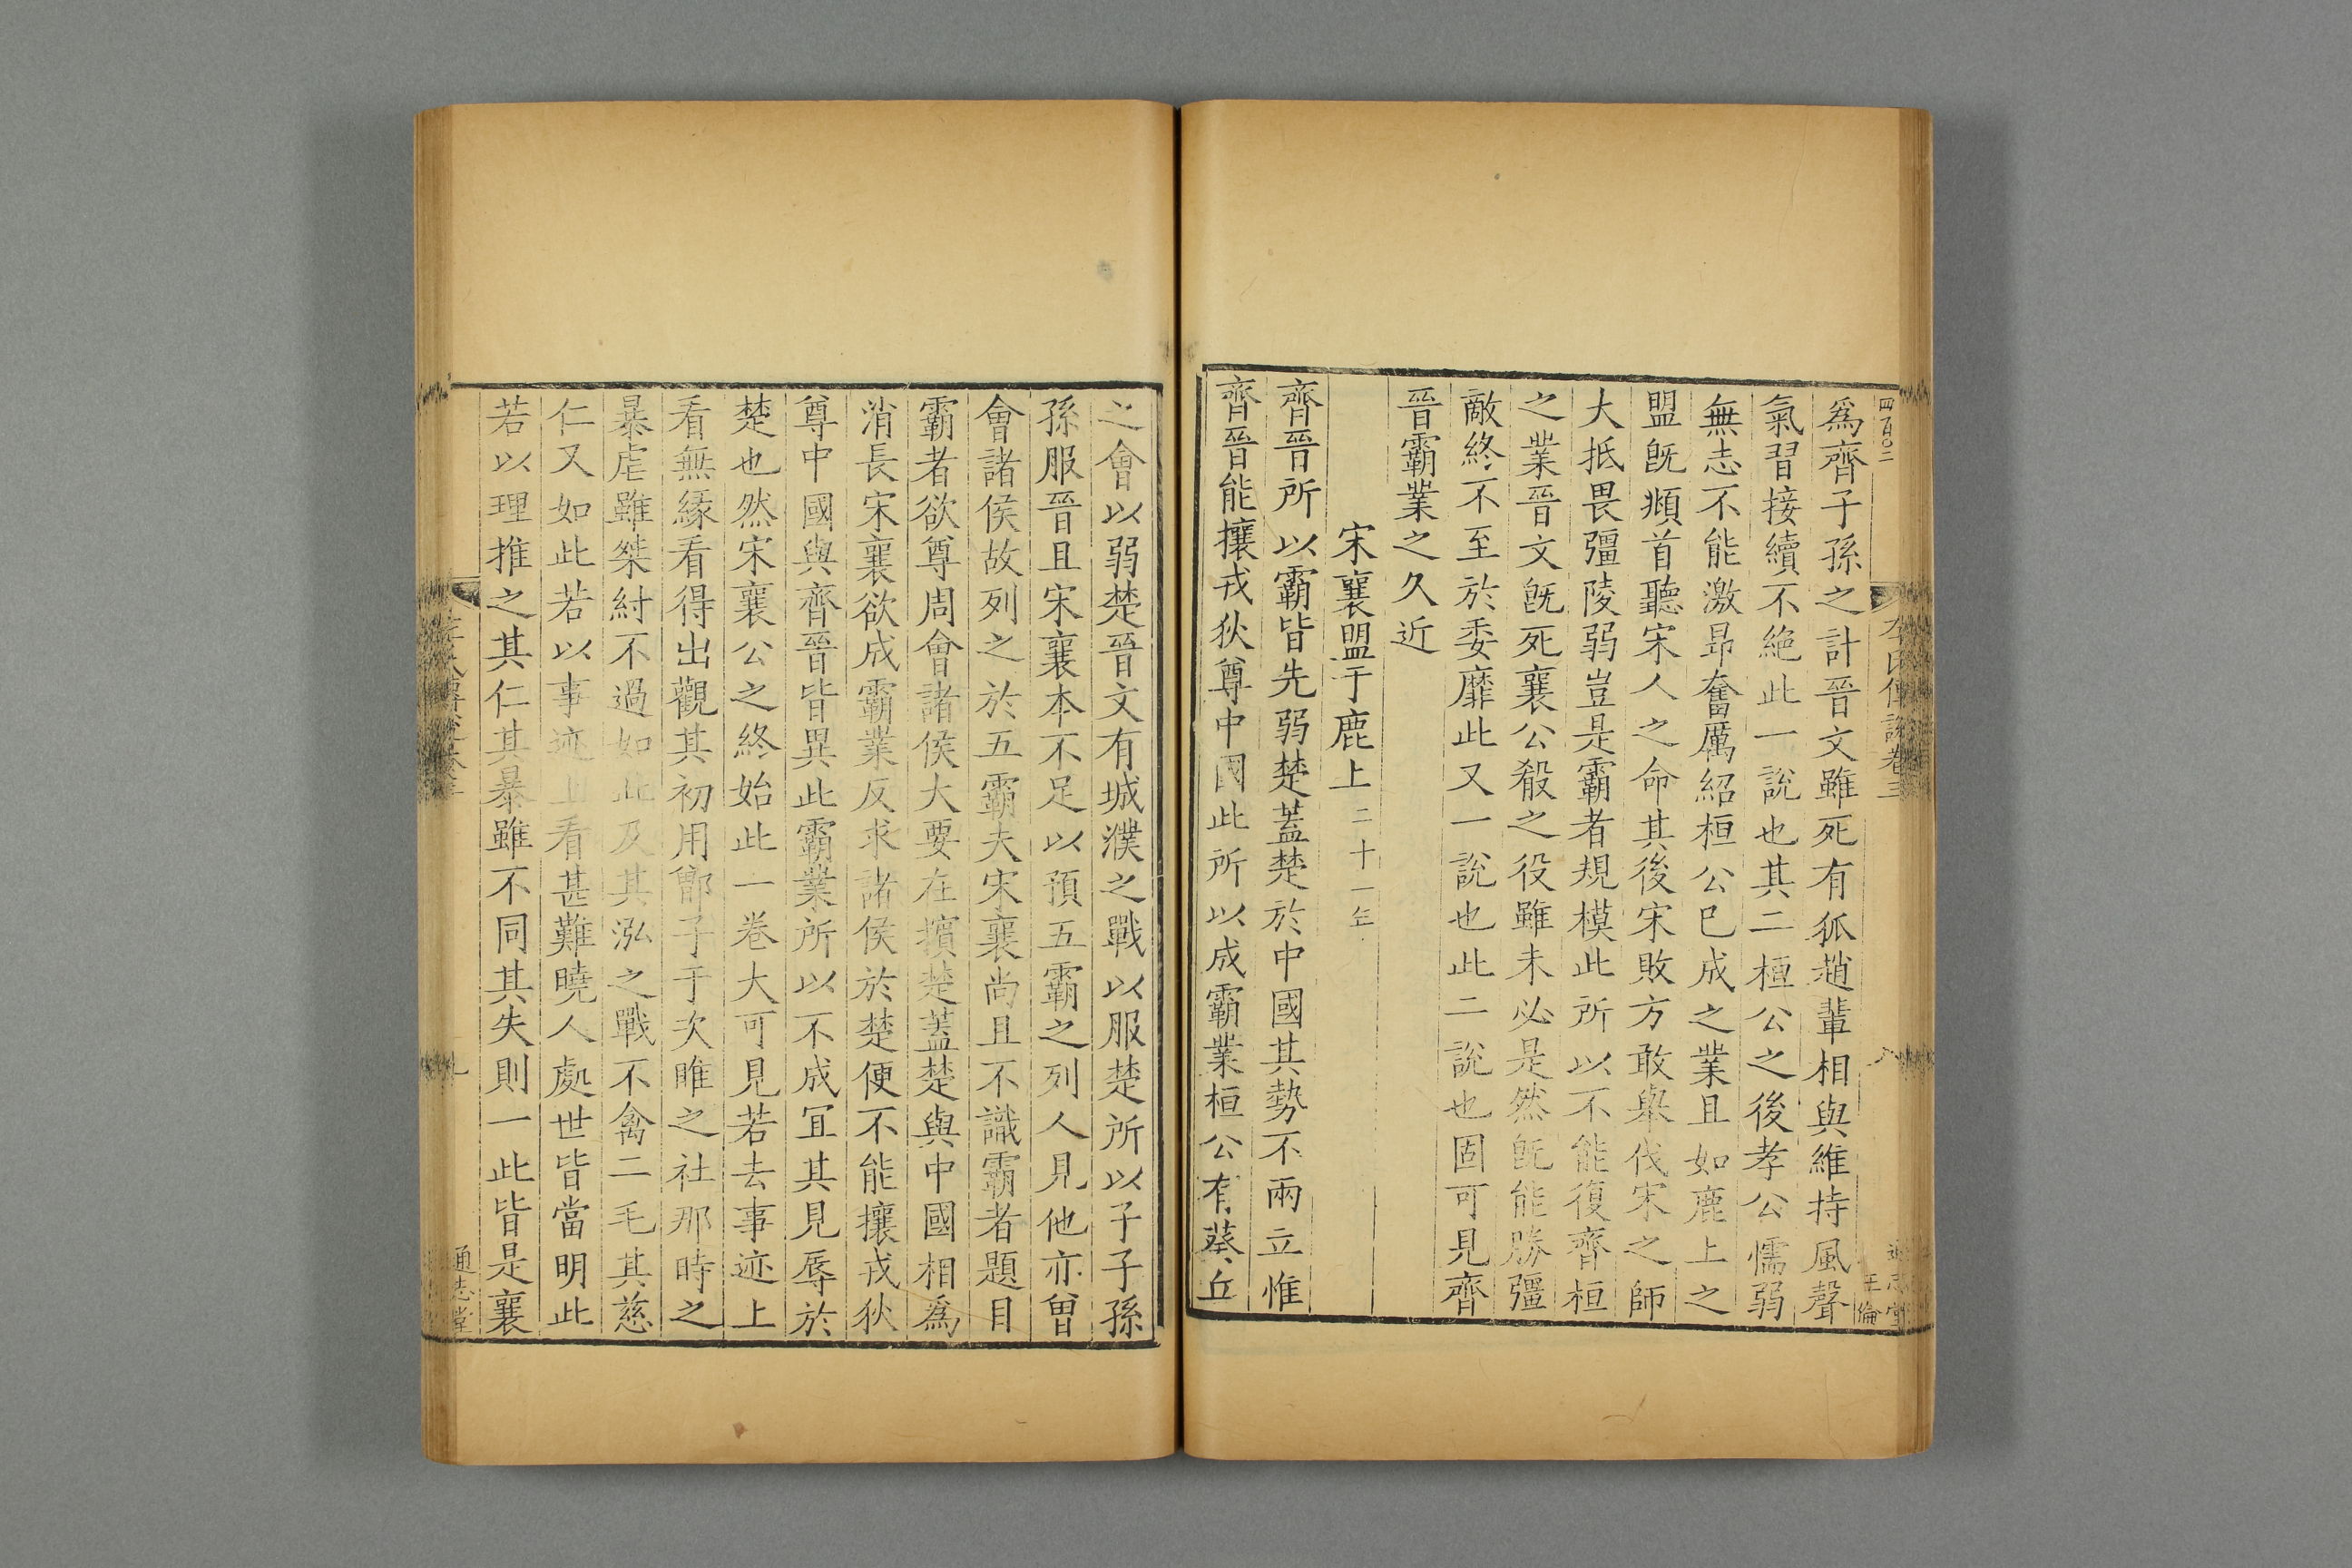 四百〇二
左氏傳說卷三
八
通志堂
王倫
爲齊子孫之計晉文雖死有狐趙輩相與維持風聲
氣習接續不絶此一說也其二桓公之後孝公懦弱
無志不能激昻奮厲紹桓公已成之業且如鹿上之
盟旣頫首聽宋人之命其後宋敗方敢舉伐宋之師
大抵畏彊陵弱豈是霸者規模此所以不能復齊桓
之業晉文旣死襄公殽之役雖未必是然旣能勝彊
敵終不至於委靡此又一說也此二說也固可見齊
晉霸業之久近
宋襄盟于鹿上二十一年
齊晉所以霸皆先弱楚蓋楚於中國其勢不兩立惟
齊晉能攘戎狄尊中國此所以成霸業桓公有葵丘
之會以弱楚晉文有城濮之戰以服楚所以子子孫
孫服晉且宋襄本不足以預五霸之列人見他亦曽
會諸侯故列之於五霸夫宋襄尚且不識霸者題目
霸者欲尊周會諸侯大要在擯楚蓋楚與中國相爲
消長宋襄欲成霸業反求諸侯於楚便不能攘戎狄
尊中國與齊晉皆異此霸業所以不成冝其見辱於
楚也然宋襄公之終始此一卷大可見若去事迹上
看無緣看得出觀其初用鄫子于次睢之社那時之
暴虐雖桀紂不過如此及其泓之戰不禽二毛其慈
仁又如此若以事迹上看甚難曉人處世皆當明此
若以理推之其仁其暴雖不同其失則一此皆是襄
九
通志堂